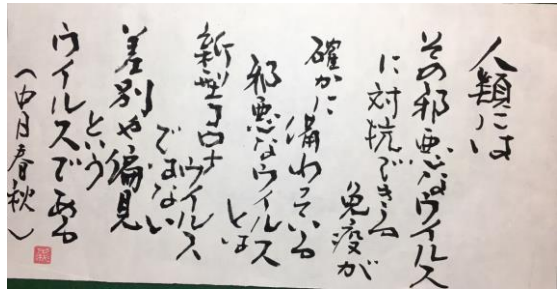 人類には
その邪悪なウイルス
に対抗できる
免疫が
確かに
備わっている
邪悪なウイルス
とは
新型コロナウイルス
ではない
差別や偏見
という
ウイルスである
(中月春秋)